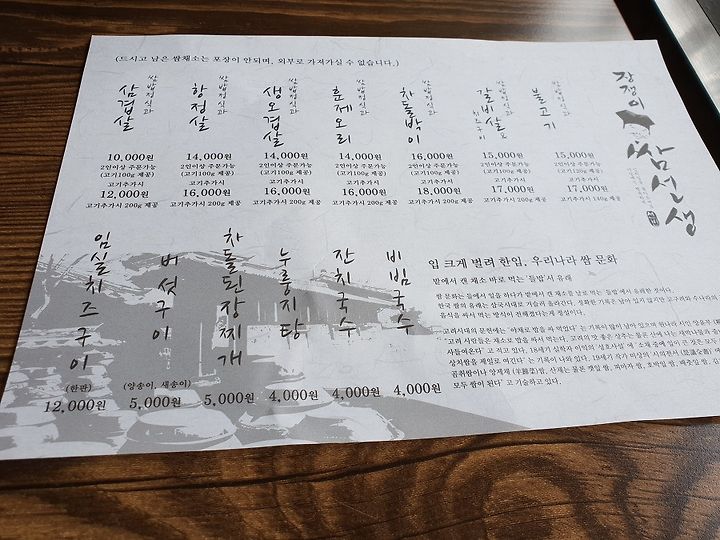 (드시고 남은 쌈채소는 포장이 안되며, 외부로 가져가실 수 없습니다.)
쌈밥정식과
삼겹살
10,000원
2인이상 주문가능
(고기100g 제공)
고기추가시
12,000원
고기추가시 200g 제공
쌈밥정식과
항정살
14,000원
2인이상 주문가능
(고기100g 제공)
고기추가시
16,000원
고기추가시 200g 제공
쌈밥정식과
생오겹살
14,000원
2인이상 주문가능
(고기100g 제공)
고기추가시
16,000원
고기추가시 200g 제공
쌈밥정식과
훈제오리
14,000원
2인이상 주문가능
(고기100g 제공)
고기추가시
16,000원
고기추가시 200g 제공
쌈밥정식과
차돌박이
16,000원
2인이상 주문가능
(고기100g 제공)
고기추가시
18,000원
고기추가시 200g 제공
쌈밥정식과
갈비살
15,000원
2인이상 주문가능
(고기100g 제공)
고기추가시
17,000원
고기추가시 200g 제공
쌈밥정식과
불고기
15,000원
2인이상 주문가능
(고기120g 제공)
고기추가시
17,000원
고기추가시 140g 제공
장정이
쌈선생
임실치즈구이
(한판)
12,000원
버섯구이
(양송이, 새송이)
5,000원
차돌된장찌개
5,000원
누룽지탕
4,000원
잔치국수
4,000원
비빔국수
4,000원
입 크게 벌려 한입, 우리나라 쌈 문화
밭에서 캔 채소 바로 먹는 들밥서 유래
쌈 문화는 들에서 일을 하다가 밭에서 캔 채소를 날로 먹는 '들밥'에서 유래한 것이다.
한국 쌈의 유래는 삼국시대로 거슬러 올라간다. 정확한 기록은 남아 있지 않지만 고구려와 수나라의
음식을 싸서 먹는 방식이 전해졌다는게 정설이다.
고려시대의 문헌에는 '야채로 밥을 싸 먹었다' 는 기록이 많이 남아 있으며 원나라 시인 양윤의
"고려 사람들은 채소로 밥을 싸서 먹는다.
사들여온다" 고 적고 있다. 18세기 실학자 이익의 성호사설 에
상치쌈을 제일로 여긴다' 는 기록이 나와 있다. 19세기 작가 미상의 시의전서
곰취쌈이나 양제채
모두 쌈이 된다' 고 기술하고 있다.